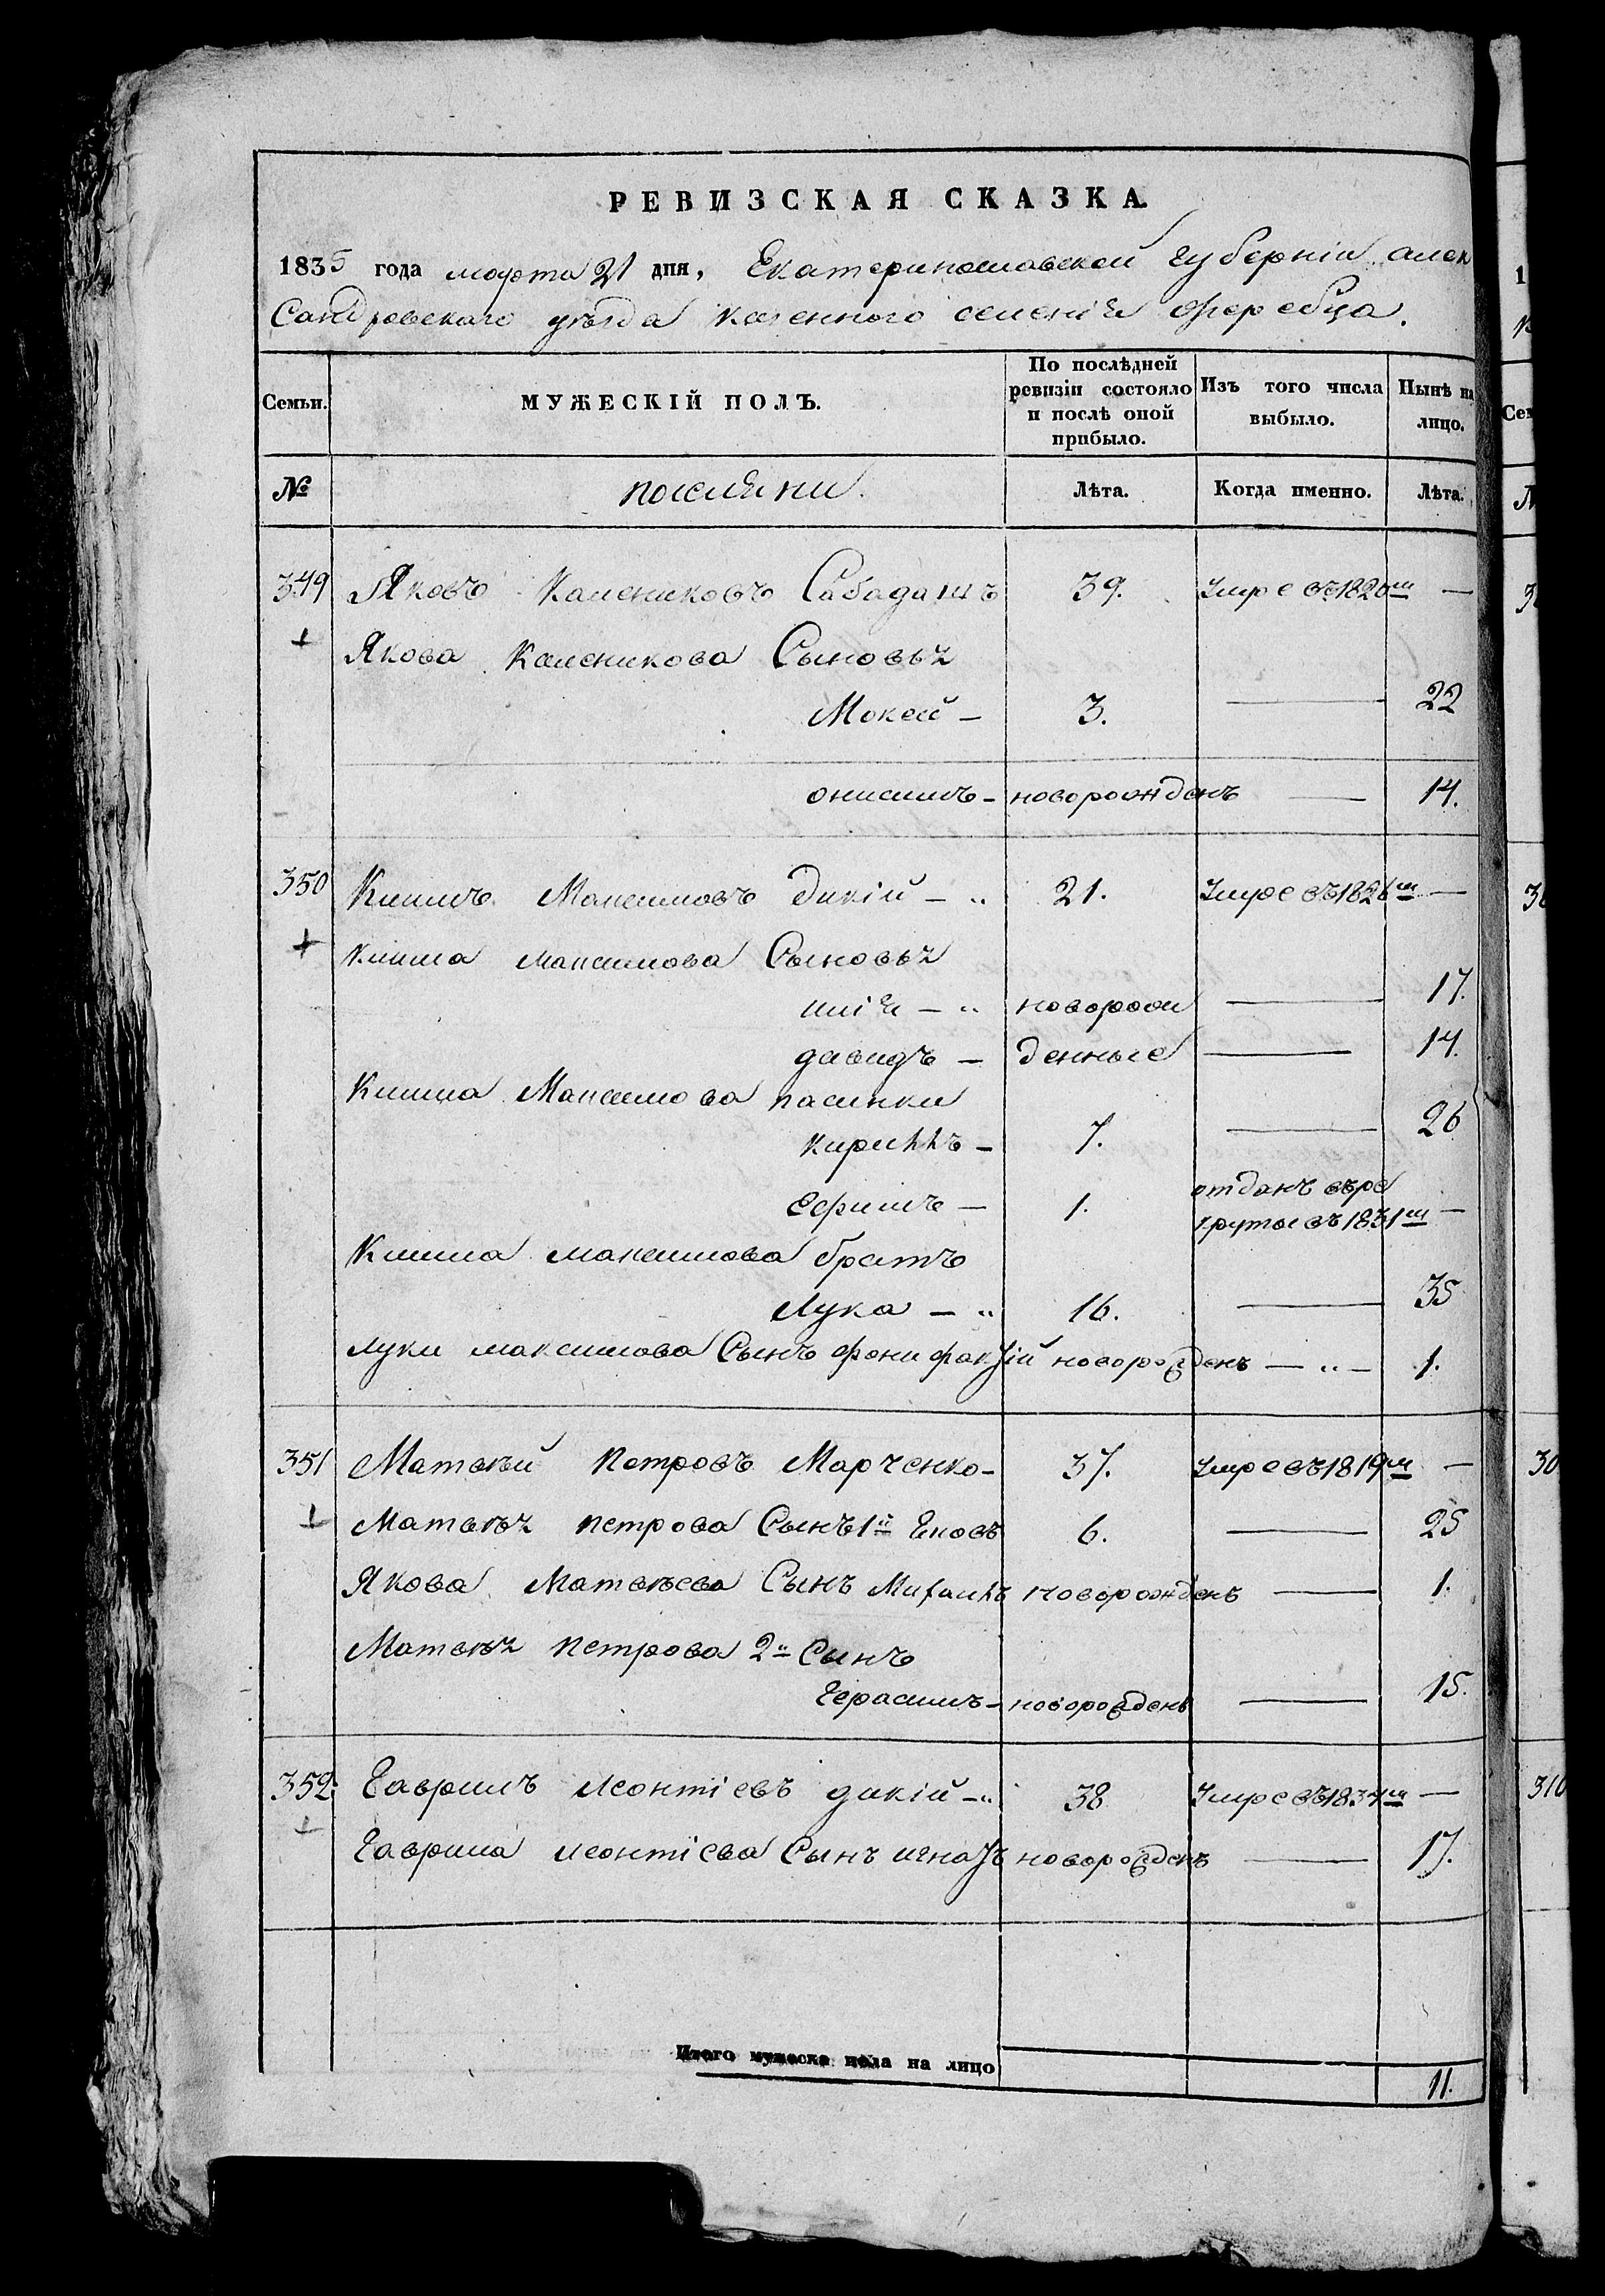 РЕВИЗСКАЯ СКАЗКА.
1835 года марта 21 дня, Екатеринославской губерніи алек
Сандровскаго уѣзда казенного селенія Жеребца.
Семьи. МУЖЕСКІЙ ПОЛЪ. По послѣдней ревизіи состояло и послѣ оной прибыло. Изъ того числа выбыло. Нынѣ на лицо.
№ поселяни. Лѣта. Когда именно. Лѣта.
349 Яковъ Калениковъ Сабадашъ 39. Умре въ 1820м —
Якова Каленикова Сыновья
Мокей — 3. — 22
онисимъ — новорожденъ — 14.
350 Климъ Максимовъ дикій — 21. Умре въ 1826м —
Клима Максимова Сыновья
илія — новорож — 17.
давидъ — денные — 14.
Клима Максимова пасинки
кирилъ — 7. — 26
Ефимъ — 1. отданъ вре
круты въ 1831м —
Клима максимова братъ
Лука — 16. — 35
луки максимова Сынъ новорожденъ — 1.
351 Матвѣй Петровъ Марченко — 37. Умре въ 1819м —
Матвѣя петрова Сынъ 1й Яковъ 6. — 25
Якова Матвѣева Сынъ Михаилъ новорожденъ — 1.
Матвѣя петрова 2й Сынъ
Герасимъ — новорожденъ — 15.
352 Гаврилъ леонтіевъ дикій — 38 Умре въ 1834м —
Гаврила леонтіева Сынъ игнатъ новорожденъ — 17.
Итого мужеска пола на лицо 11.